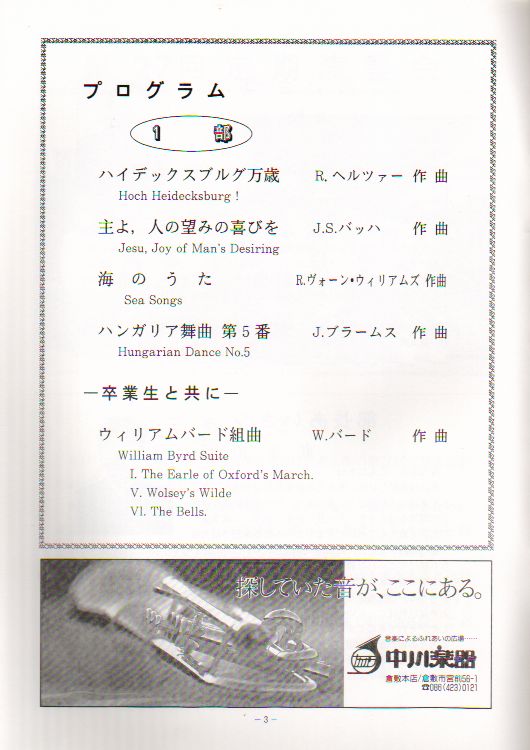 プログラム
1 部
ハイデックスブルグ万歳 R.ヘルツァー 作 曲
Hoch Heidecksburg !
主よ，人の望みの喜びを J.S.バッハ 作 曲
Jesu, Joy of Man's Desiring
海 の う た R.ヴォーン・ウィリアムズ 作曲
Sea Songs
ハンガリア舞曲 第5番 J.ブラームス 作 曲
Hungarian Dance No.5
―卒業生と共に―
ウィリアムバード組曲 W.バード 作 曲
William Byrd Suite
I. The Earle of Oxford's March.
V. Wolsey's Wilde
VI. The Bells.
探していた音が、ここにある。
音楽によるふれあいの広場……
中川楽器
倉敷本店/倉敷市宮前56-1
☎086(423)0121
－3－